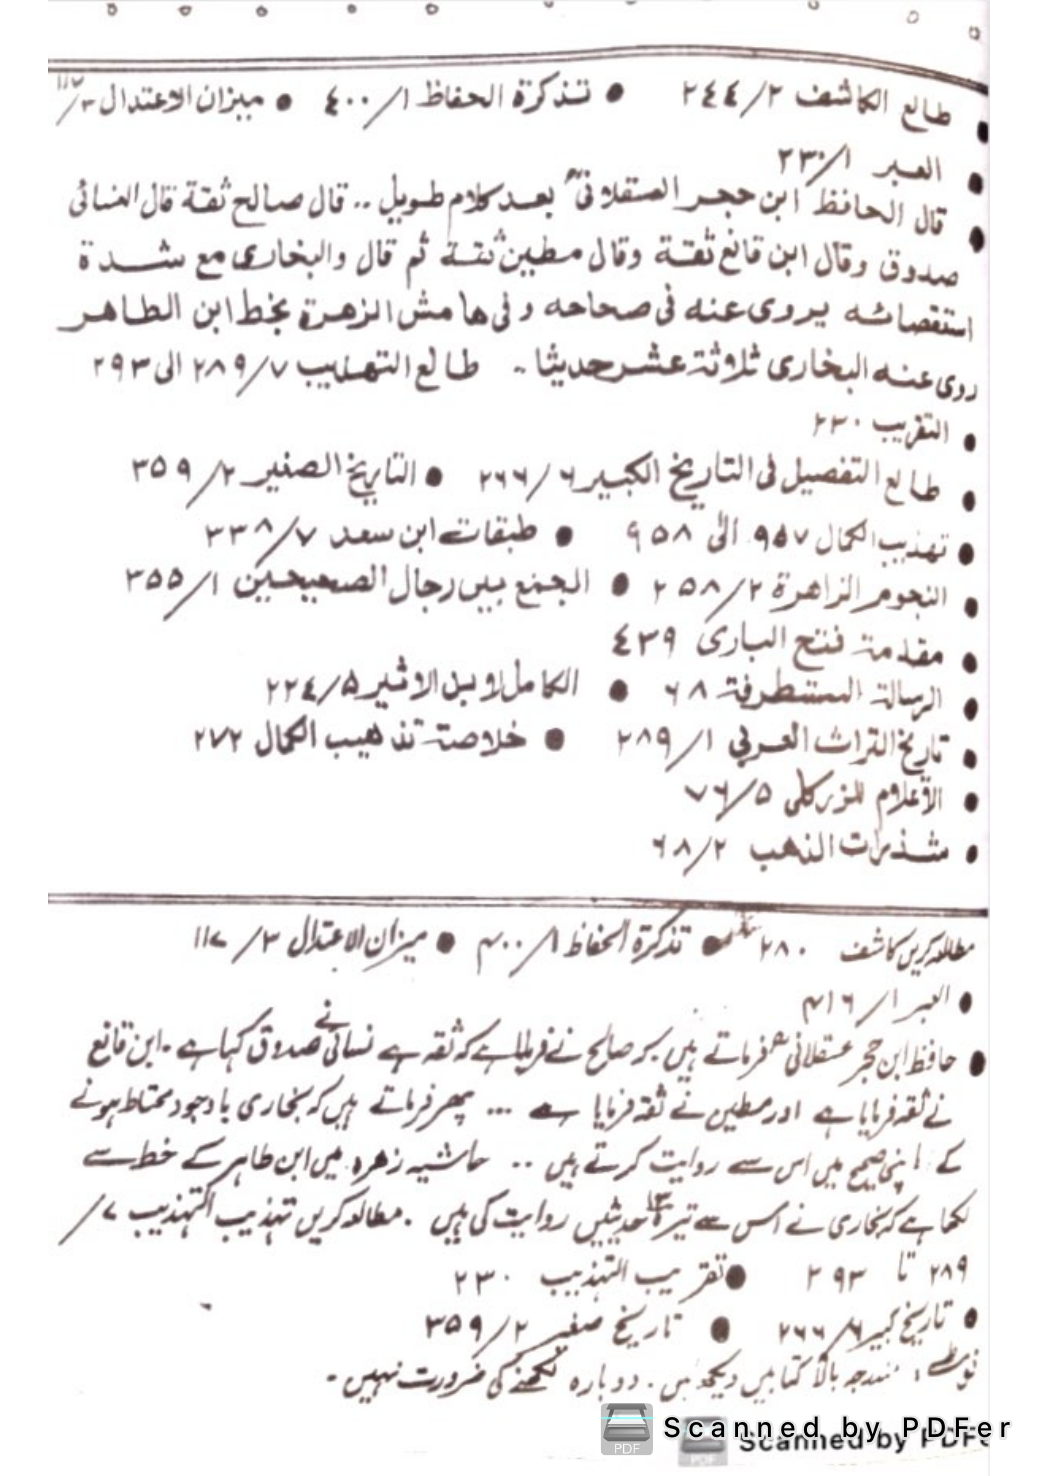 • طالع الكاشف ٢/٢٤٤ • تذكرة الحفاظ ١/٤٠٠ • ميزان الاعتدال ٣/١١٧
• العبر ١/٢٣٠
• قال الحافظ ابن حجر العسقلانيؒ بعد كلام طويل .. قال صالح ثقة قال النسائى
صدوق وقال ابن قانع ثقة وقال مطين ثقة ثم قال والبخارى مع شدة
استقصائه يروى عنه فى صحاحه وفى هامش الزهرة بخط ابن الطاهر
روى عنه البخارى ثلاثة عشر حديثا .. طالع التهذيب ٧/٢٨٩ الى ٢٩٣
• التقريب ٢٣٠
• طالع التفصيل فى التاريخ الكبير ٦/٢٦٦ • التاريخ الصغير ٢/٣٥٩
• تهذيب الكمال ٩٥٧ الى ٩٥٨ • طبقات ابن سعد ٧/٣٣٨
• النجوم الزاهرة ٢/٢٥٨ • الجمع بين رجال الصحيحين ١/٣٥٥
• مقدمة فتح البارى ٤٣٩
• الرسالة المستطرفة ٦٨ • الكامل لابن الاثير ٥/٢٢٤
• تاريخ التراث العربي ١/٢٨٩ • خلاصة تذهيب الكمال ٢٧٢
• الأعلام للزركلى ٥/٧٦
• شذرات الذهب ٢/٦٨
مطالعہ کریں کاشف ٢٨٠ • تذکرۃ الحفاظ ١/٤٠٠ • میزان الاعتدال ٣/١١٧
• العبر ١/٤١٦
• حافظ ابن حجر عسقلانیؒ فرماتے ہیں کہ صالح نے فرمایا ہے کہ ثقہ ہے نسائی نے صدوق کہا ہے۔ ابن قانع
نے ثقہ فرمایا ہے اور مطین نے ثقہ فرمایا ہے ... پھر فرماتے ہیں کہ بخاری باوجود محتاط ہونے
کے اپنی صحیح میں اس سے روایت کرتے ہیں .. حاشیہ زھرہ میں ابن طاہر کے خط سے
لکھا ہے کہ بخاری نے اس سے تیرہ ١٣ حدیثیں روایت کی ہیں ۔ مطالعہ کریں تہذیب التہذیب ٧/
٢٨٩ تا ٢٩٣ • تقریب التہذیب ٢٣٠
• تاریخ کبیر ٦/٢٦٦ • تاریخ صغیر ٢/٣٥٩
نوٹ: مندرجہ بالا کتابیں دیکھو بس۔ دوبارہ لکھنے کی ضرورت نہیں۔
Scanned by PDFer
Scanned by PDFe